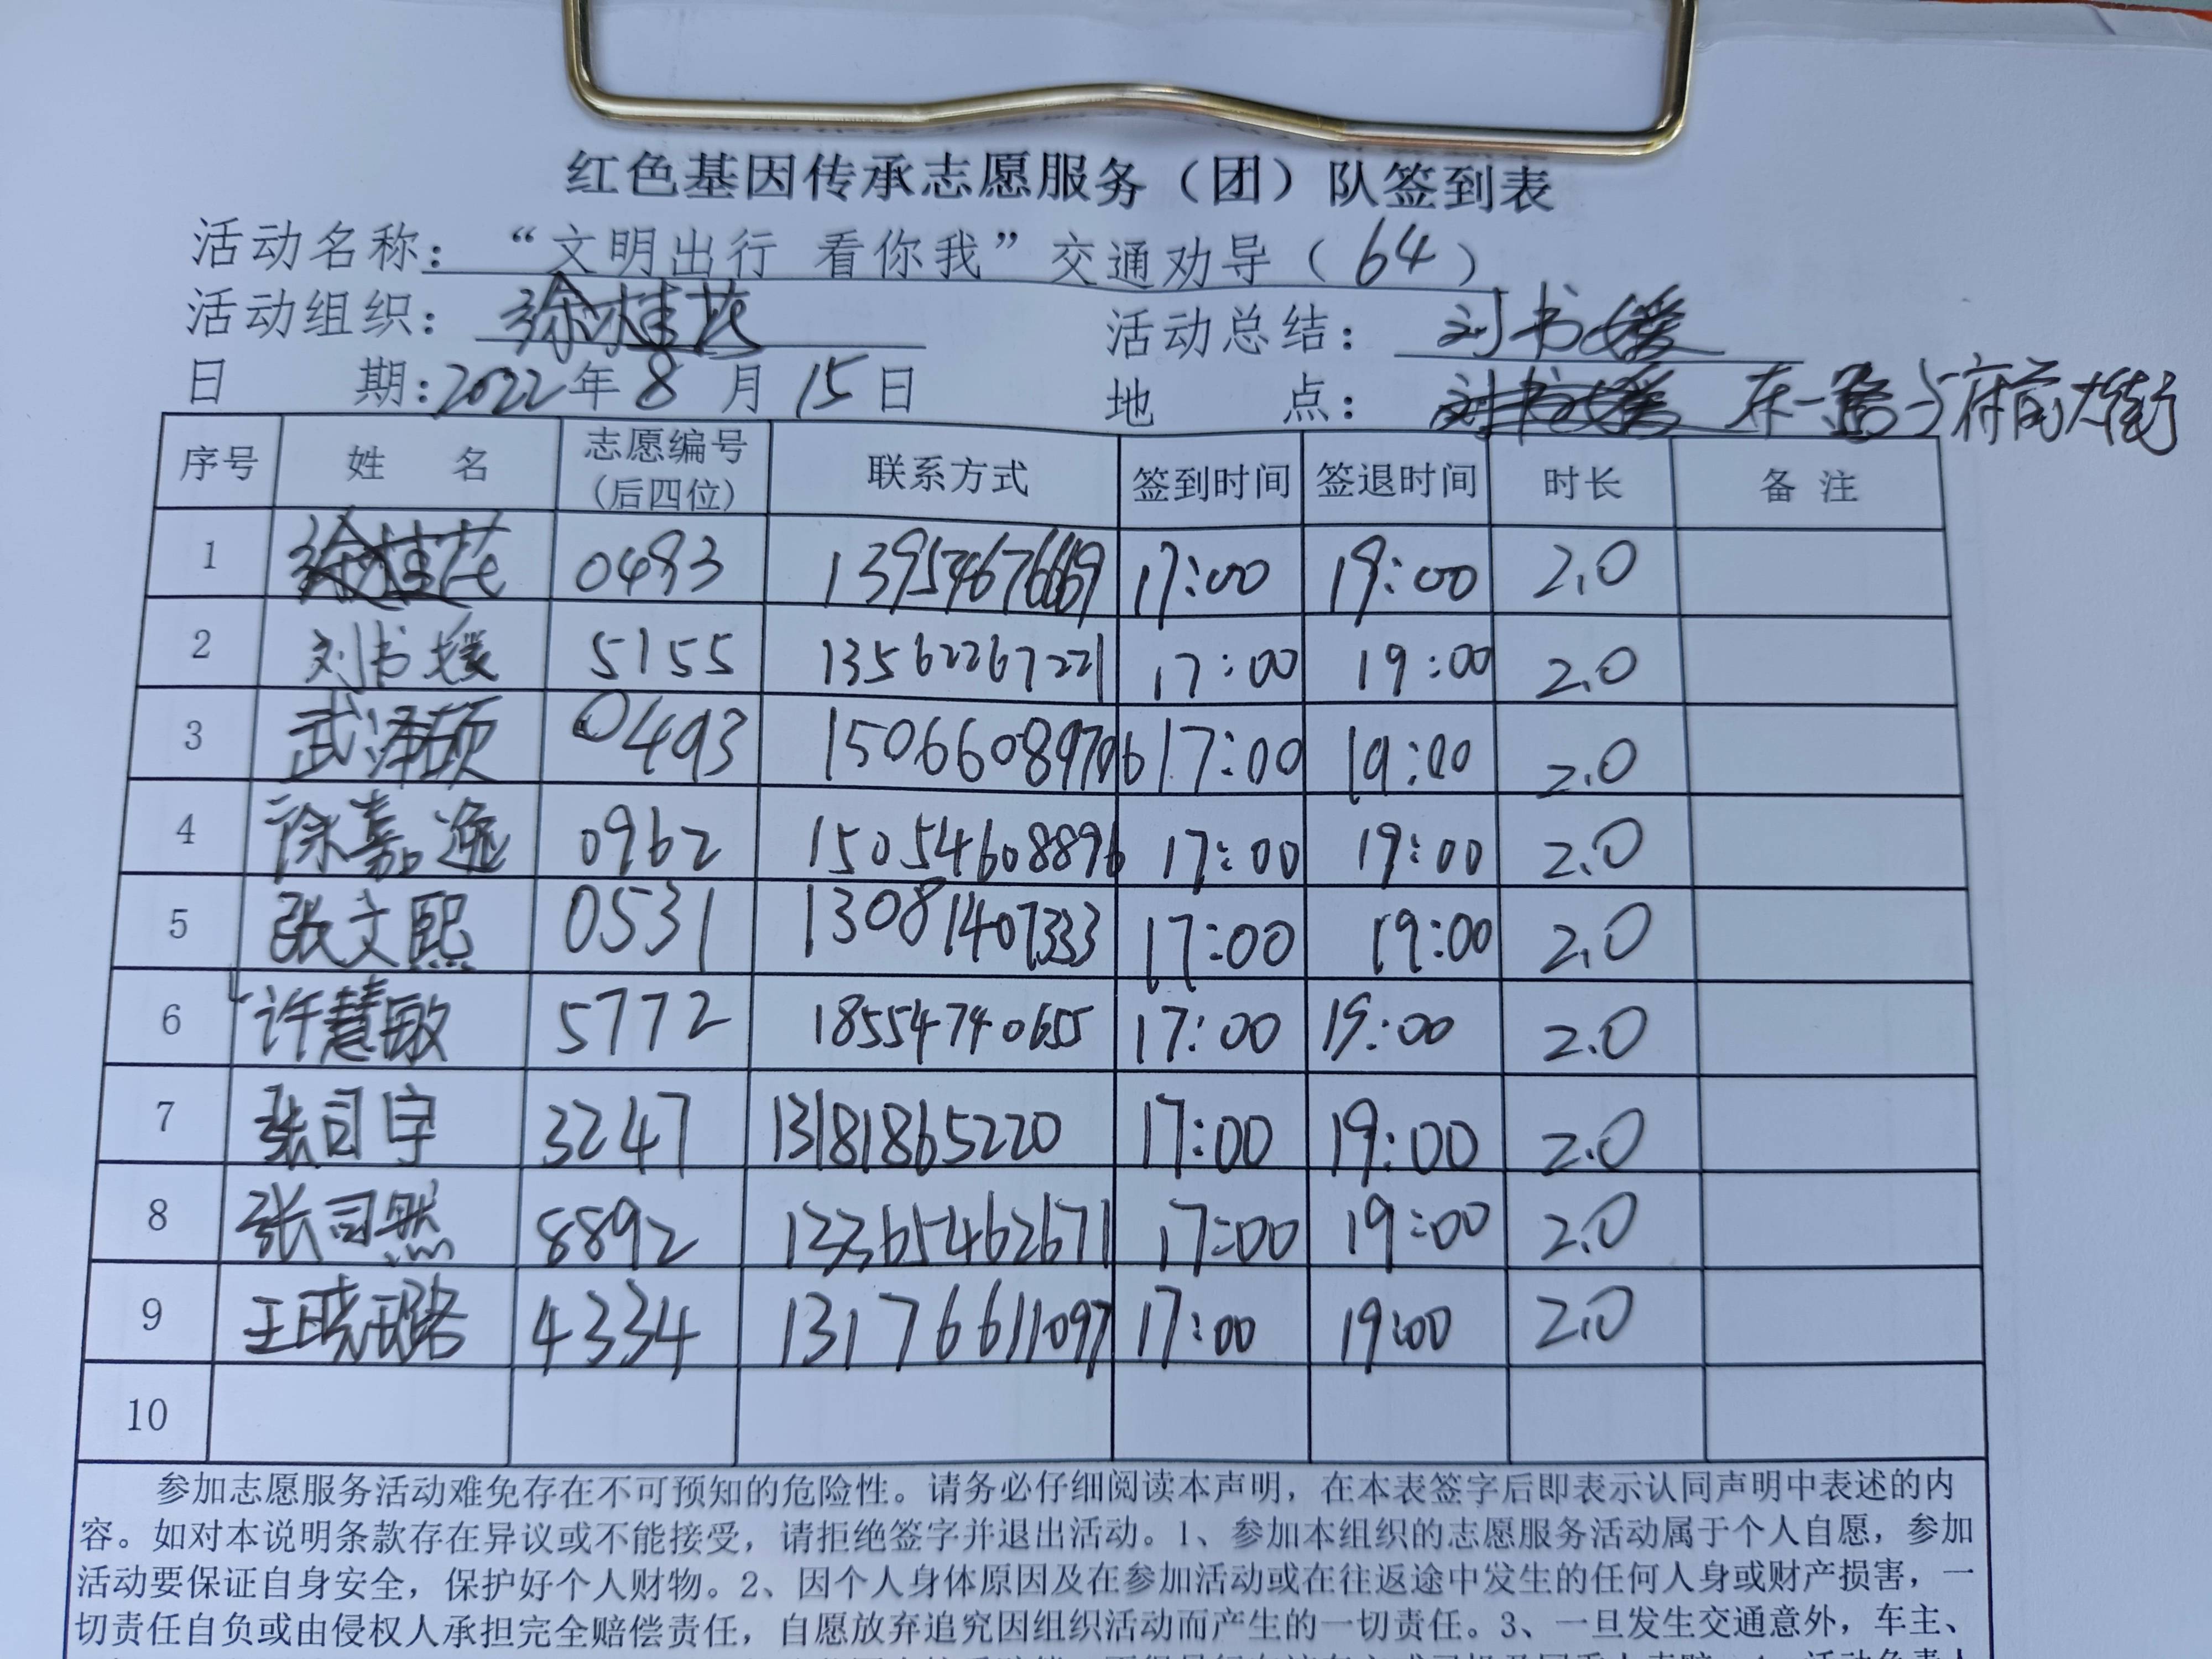 红色基因传承志愿服务（团）队签到表
活动名称：“文明出行 看你我”交通劝导（64）
活动组织：徐桂花 活动总结：刘书媛
日 期：2022年8月15日 地 点：东一路与府前大街
序号 姓 名 志愿编号（后四位） 联系方式 签到时间 签退时间 时长 备 注
1 徐桂花 0493 17:00 19:00 2.0
2 刘书媛 5155 13562267221 17:00 19:00 2.0
3 武泽硕 0493 17:00 19:00 2.0
4 徐嘉逸 0962 15054608896 17:00 19:00 2.0
5 张文熙 0531 13081407333 17:00 19:00 2.0
6 许慧敏 5772 18554740655 17:00 19:00 2.0
7 张司宇 3247 13181865220 17:00 19:00 2.0
8 张司然 8892 13365462671 17:00 19:00 2.0
9 王晓璐 4334 13176611097 17:00 19:00 2.0
10
参加志愿服务活动难免存在不可预知的危险性。请务必仔细阅读本声明，在本表签字后即表示认同声明中表述的内
容。如对本说明条款存在异议或不能接受，请拒绝签字并退出活动。1、参加本组织的志愿服务活动属于个人自愿，参加
活动要保证自身安全，保护好个人财物。2、因个人身体原因及在参加活动或在往返途中发生的任何人身或财产损害，一
切责任自负或由侵权人承担完全赔偿责任，自愿放弃追究因组织活动而产生的一切责任。3、一旦发生交通意外，车主、